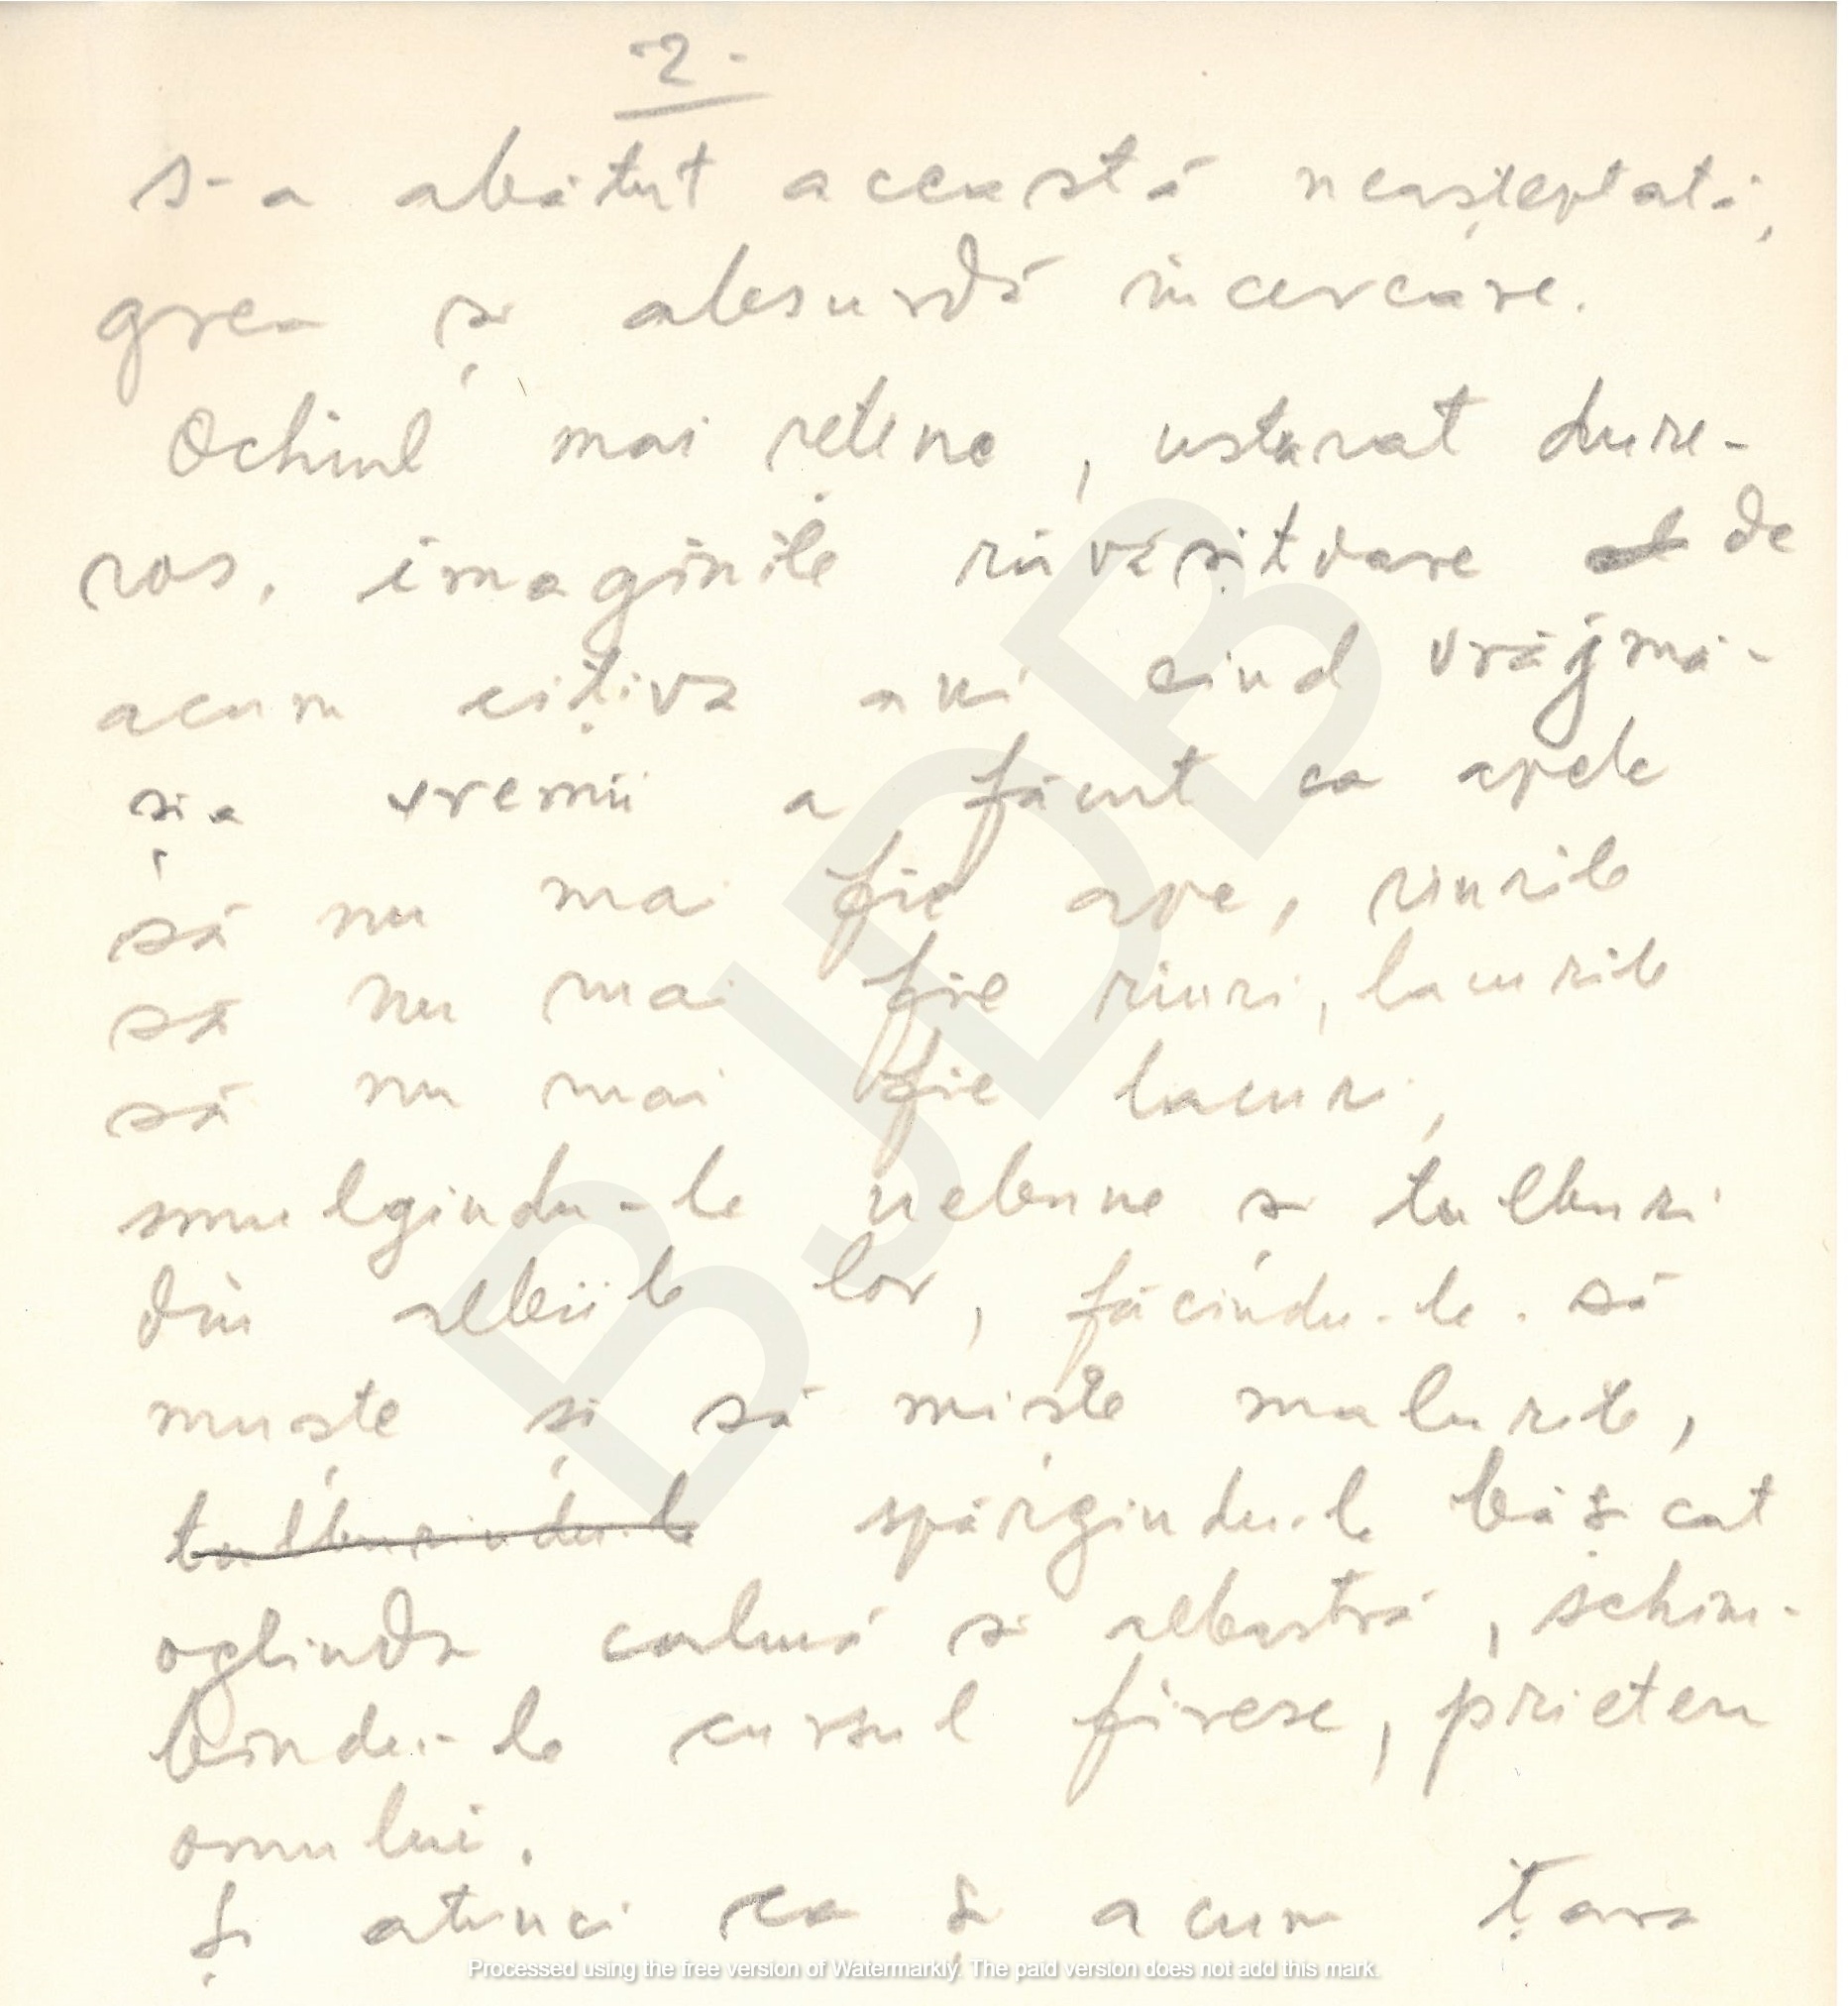 -2-
s-a abătut această neașteptată,
grea și absurdă încercare.
Ochiul mai reține, usturat dure-
ros, imaginile răvășitoare de
acum cîțiva ani cînd vrăjmă-
șia vremii a făcut ca apele
să nu mai fie ape, rîurile
să nu mai fie rîuri, lacurile
să nu mai fie lacuri,
smulgîndu-le nebune și tulburi
din albiile lor, făcîndu-le să
muște și să miște malurile,
tulburîndu-le spărgîndu-le bășcat
oglinda calmă și albastră, schim-
bîndu-le cursul firesc, prieten
omului.
Și atunci ca și acum țara
BJDB
Processed using the free version of Watermarkly. The paid version does not add this mark.